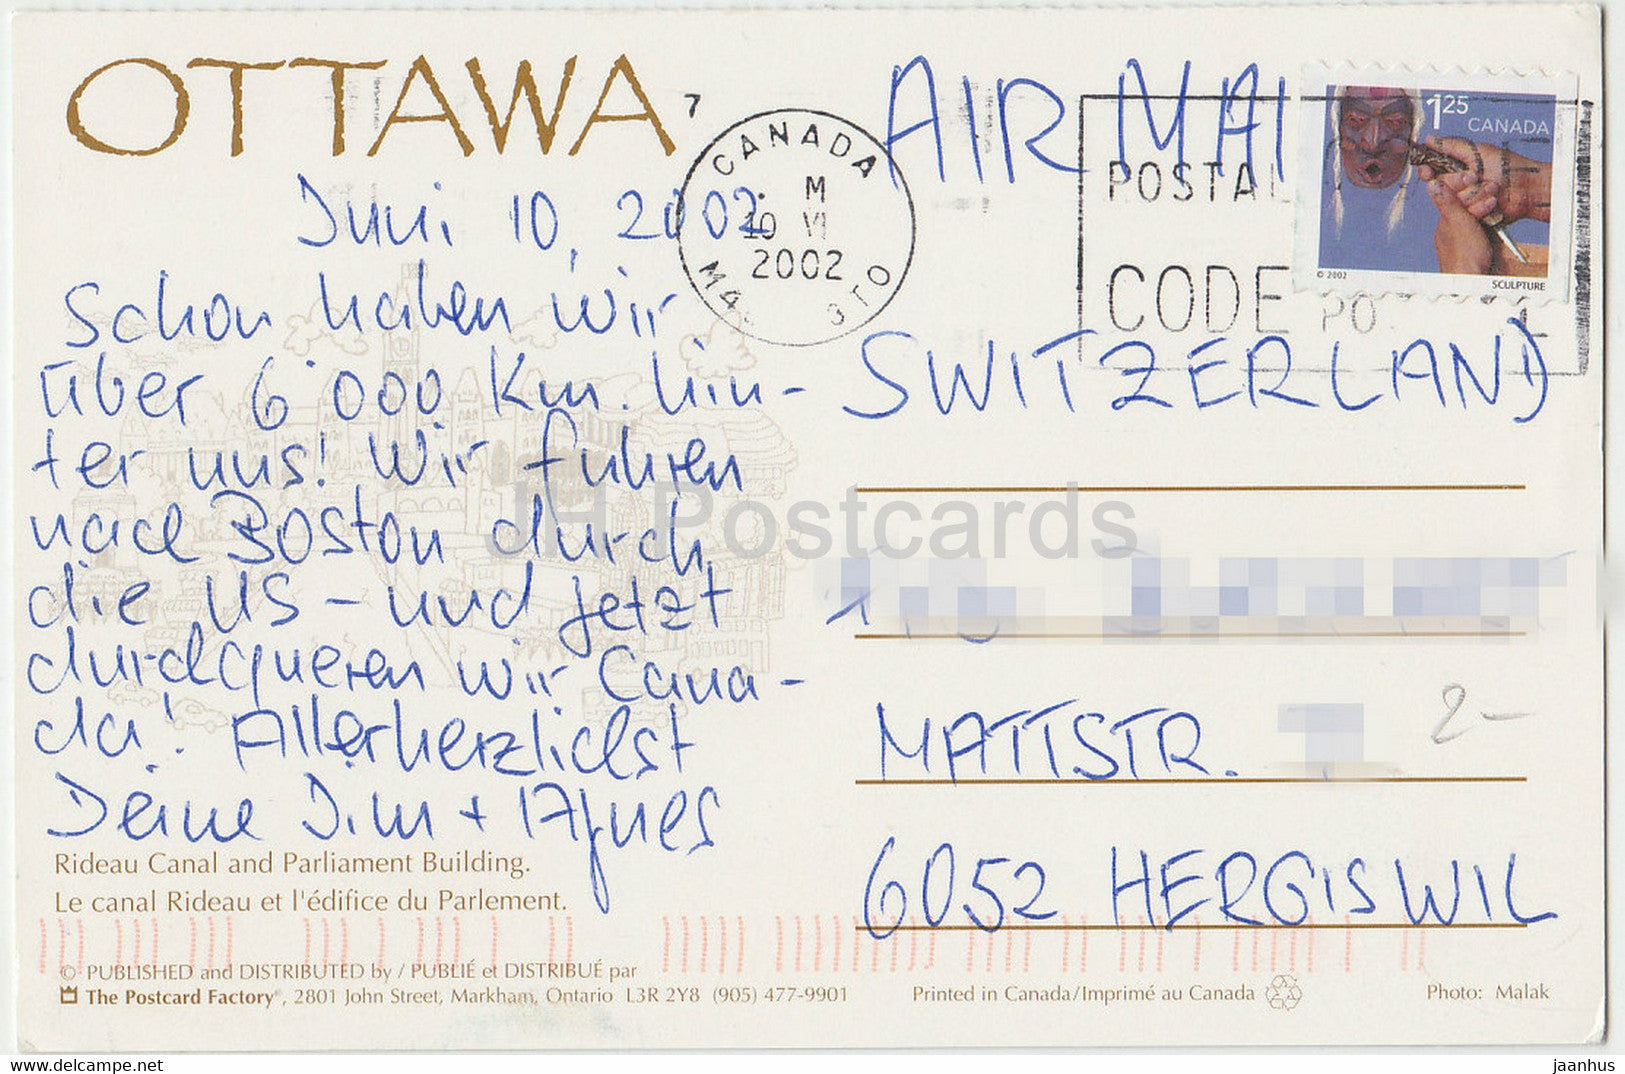 OTTAWA
Juni 10, 2002
Schon haben wir
über 6'000 Km. hin-
ter uns! Wir fuhren
nach Boston durch
die US - und jetzt
durchqueren wir Cana-
da! Allerherzlichst
Deine Jim + Agnes
Rideau Canal and Parliament Building.
Le canal Rideau et l'édifice du Parlement.
© PUBLISHED and DISTRIBUTED by / PUBLIÉ et DISTRIBUÉ par
The Postcard Factory®, 2801 John Street, Markham, Ontario L3R 2Y8 (905) 477-9901
7
CANADA
M
10 VI
2002
AIR MAI
POSTAL
CODE PO
125
CANADA
© 2002
SCULPTURE
SWITZERLAND
JH Postcards
MATTSTR.
2-
6052 HERGISWIL
Printed in Canada/Imprimé au Canada
Photo: Malak
www.delcampe.net
jaanhus